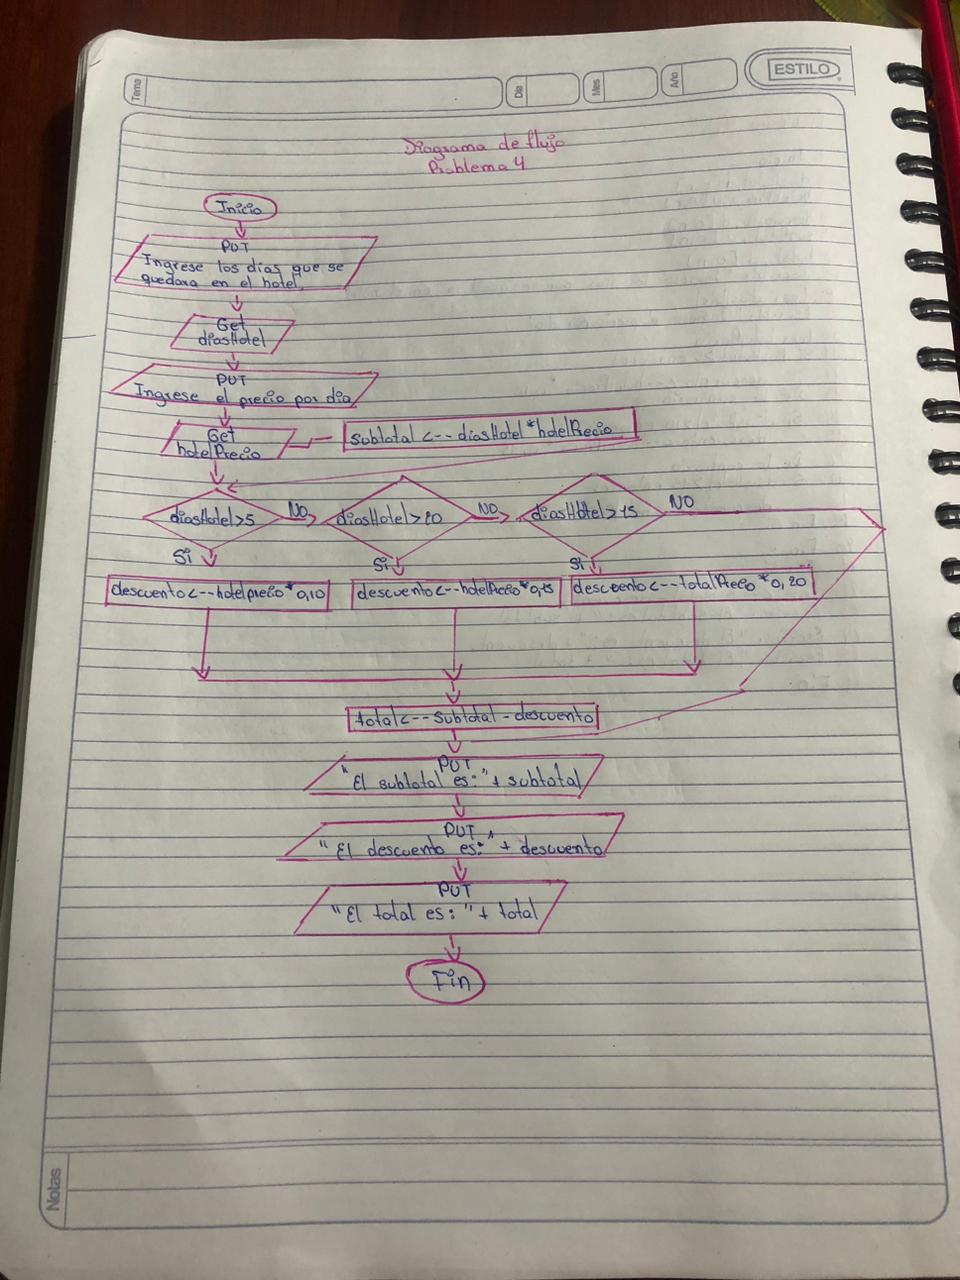 Tema
Dia
Mes
Año
ESTILO
Diagrama de flujo
Problema 4
Inicio
PUT
Ingrese los dias que se
quedara en el hotel
Get
diasHotel
PUT
Ingrese el precio por dia
Get
hotelPrecio
subtotal <-- diasHotel * hotelPrecio
diasHotel>5
NO
diasHotel>10
NO
diasHotel>15
NO
Si
Si
Si
descuento<--hotelprecio*0,10
descuento<--hotelPrecio*0,15
descuento<--totalPrecio*0,20
total<--subtotal-descuento
PUT
"El subtotal es:"+ subtotal
PUT
"El descuento es:"+ descuento
PUT
"El total es: "+ total
Fin
Notas